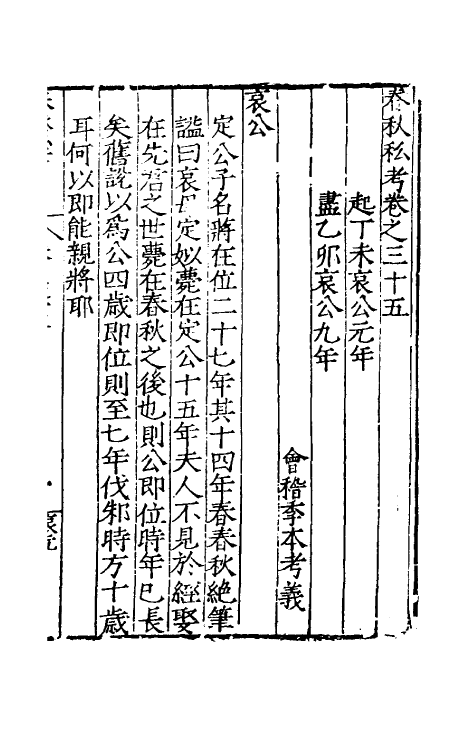 春秋私考卷之三十五
起丁未哀公元年
盡乙卯哀公九年
會稽季本考義
哀公
定公子名將在位二十七年其十四年春春秋絕筆
謚曰哀母定姒薨在定公十五年夫人不見於經娶
在先君之世薨在春秋之後也則公即位時年已長
矣舊說以為公四歲即位則至七年伐邾時方十歲
耳何以即能親將耶